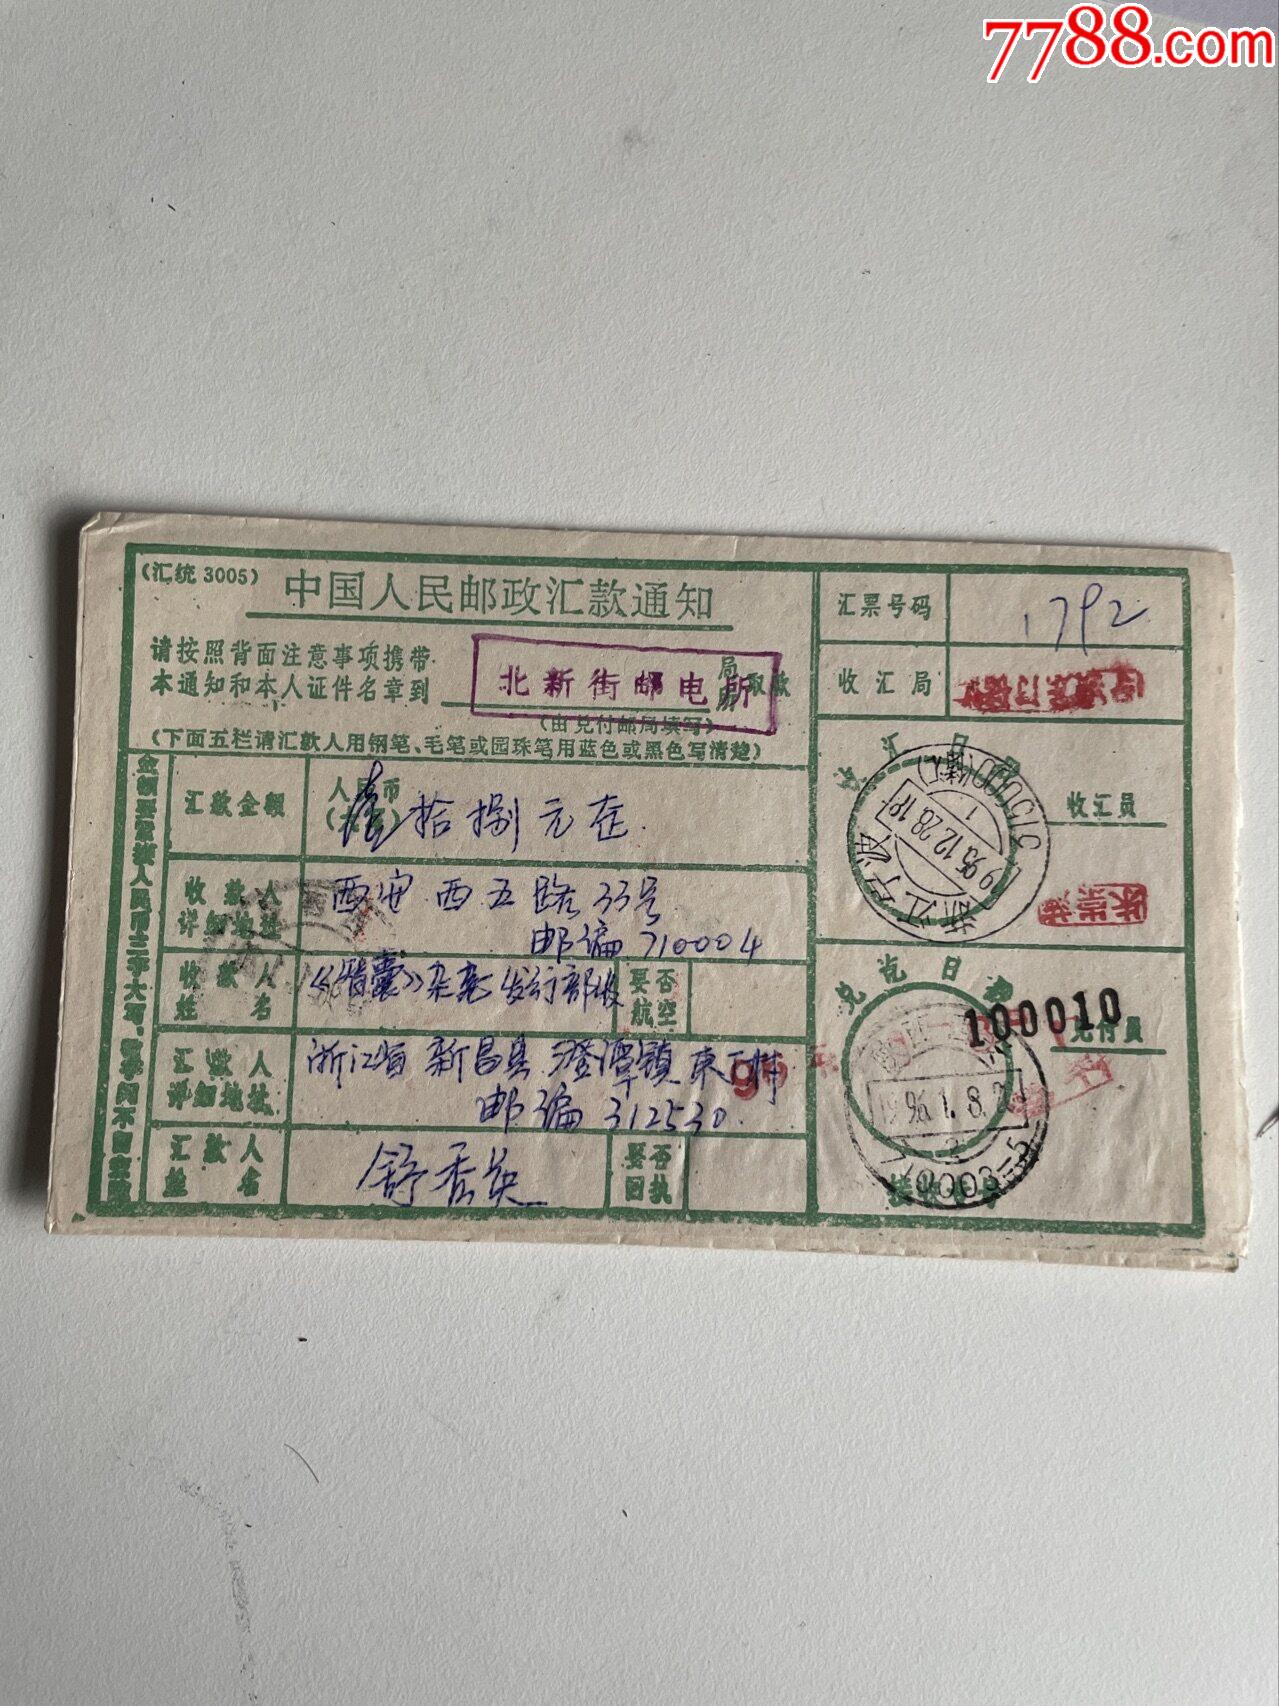 7788.com
(汇统 3005)
中国人民邮政汇款通知
请按照背面注意事项携带
本通知和本人证件名章到
北新街邮电所
局
所
取款
(由兑付邮局填写)
(下面五栏请汇款人用钢笔、毛笔或园珠笔用蓝色或黑色写清楚)
汇票号码
1792
收汇局
收汇日
浙江宁波
1995.12.28.19
1
收汇员
汇款金额
人民币
壹拾捌元
收款人
详细地址
西安西五路33号
邮编710004
收款人
姓名
杂志发行部收
要否
航空
汇款人
详细地址
浙江省新昌县澄潭镇
邮编312530
汇款人
姓名
舒香英
要否
回执
兑讫日
100010
兑付员
1996.1.8.
2